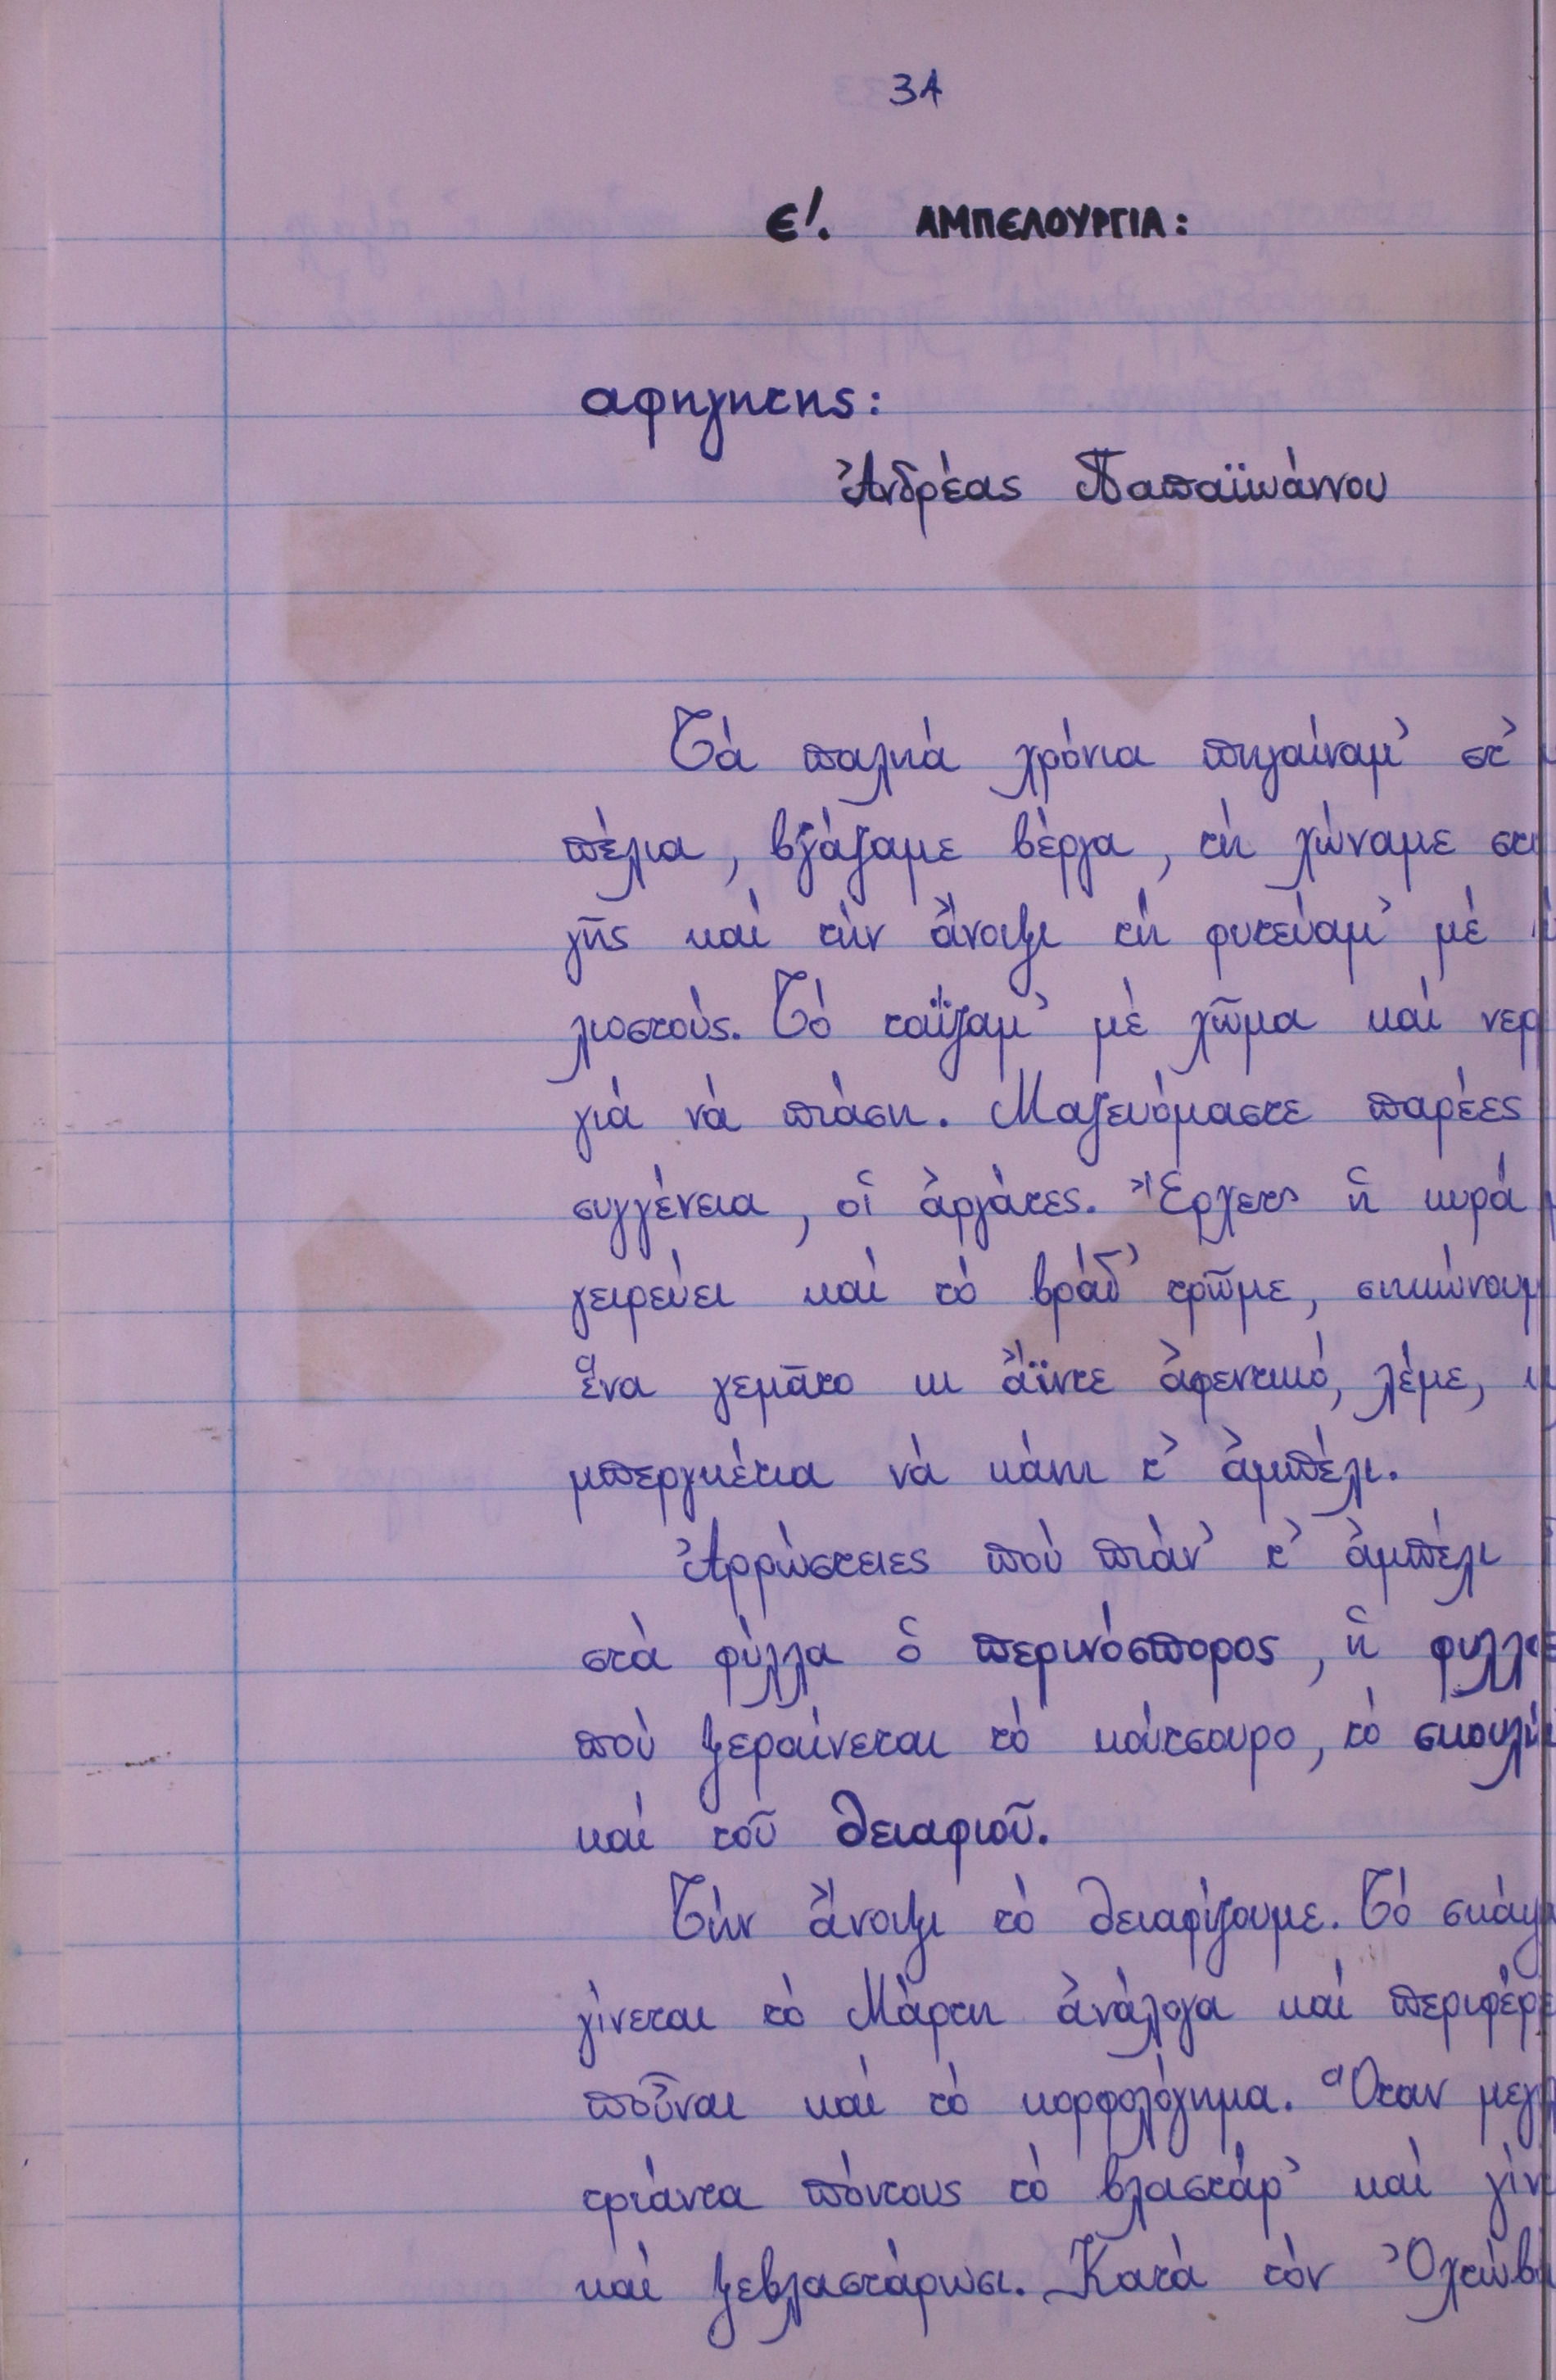 31
Ε'. ΑΜΠΕΛΟΥΡΓΙΑ:
αφηγητης:
Ἀνδρέας Παπαϊωάννου
Τά παλιά χρόνια πηγαίναμ' στ'
πέλια, βγάζαμε βέργα, τή χώναμε στ
γῆς καί τήν ἄνοιξι τή φυτεύαμ' μέ
λιοστούς. Τό ταΐζαμ' μέ χῶμα καί νερ
γιά νά πιάση. Μαζευόμαστε παρέες
συγγένεια, οἱ ἀργάτες. Ἔρχετ' ἡ κυρά
γειρεύει καί τό βράδ' τρῶμε, σηκώνουμ
ἕνα γεμᾶτο κι ἄϊντε ἀφεντικό, λέμε,
μπεργκέτια νά κάνη τ' ἀμπέλι.
Ἀρρώστειες πού πιάν' τ' ἀμπέλι
στά φύλλα ὁ περινόσπορος, ἡ φυλλο
πού ξεραίνεται τό κούτσουρο, τό σκουλή
καί τοῦ θειαφιοῦ.
Τήν ἄνοιξι τό θειαφίζουμε. Τό σκάψ
γίνεται τό Μάρτη ἀνάλογα καί περιφέρε
ποὖναι καί τό κορφολόγημα. Ὅταν μεγα
τριάντα πόντους τό βλαστάρ' καί γίν
καί ξεβλαστάρωσι. Κατά τόν Ὀχτώβ